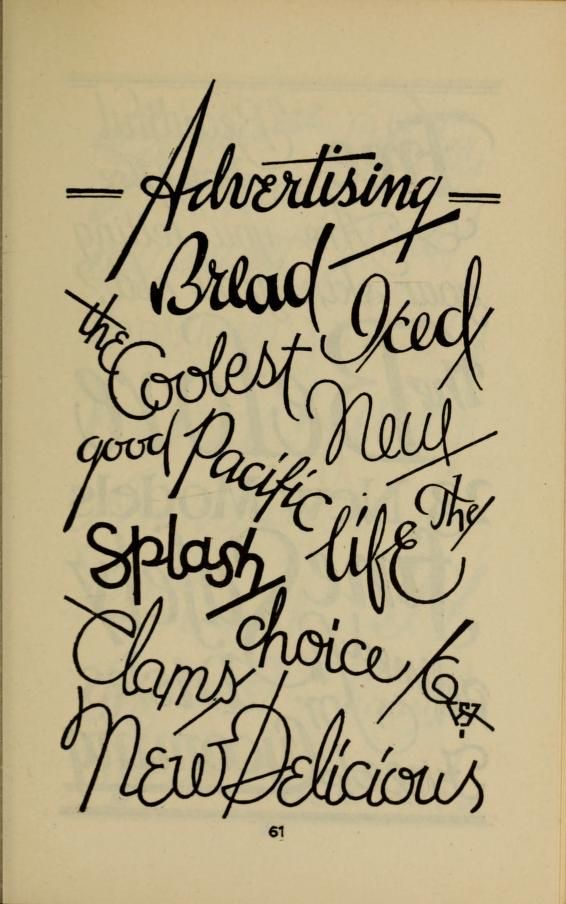 Advertising
Bread Iced
the Coolest
New
good Pacific
The
Splash life
Clams choice
New Delicious
61